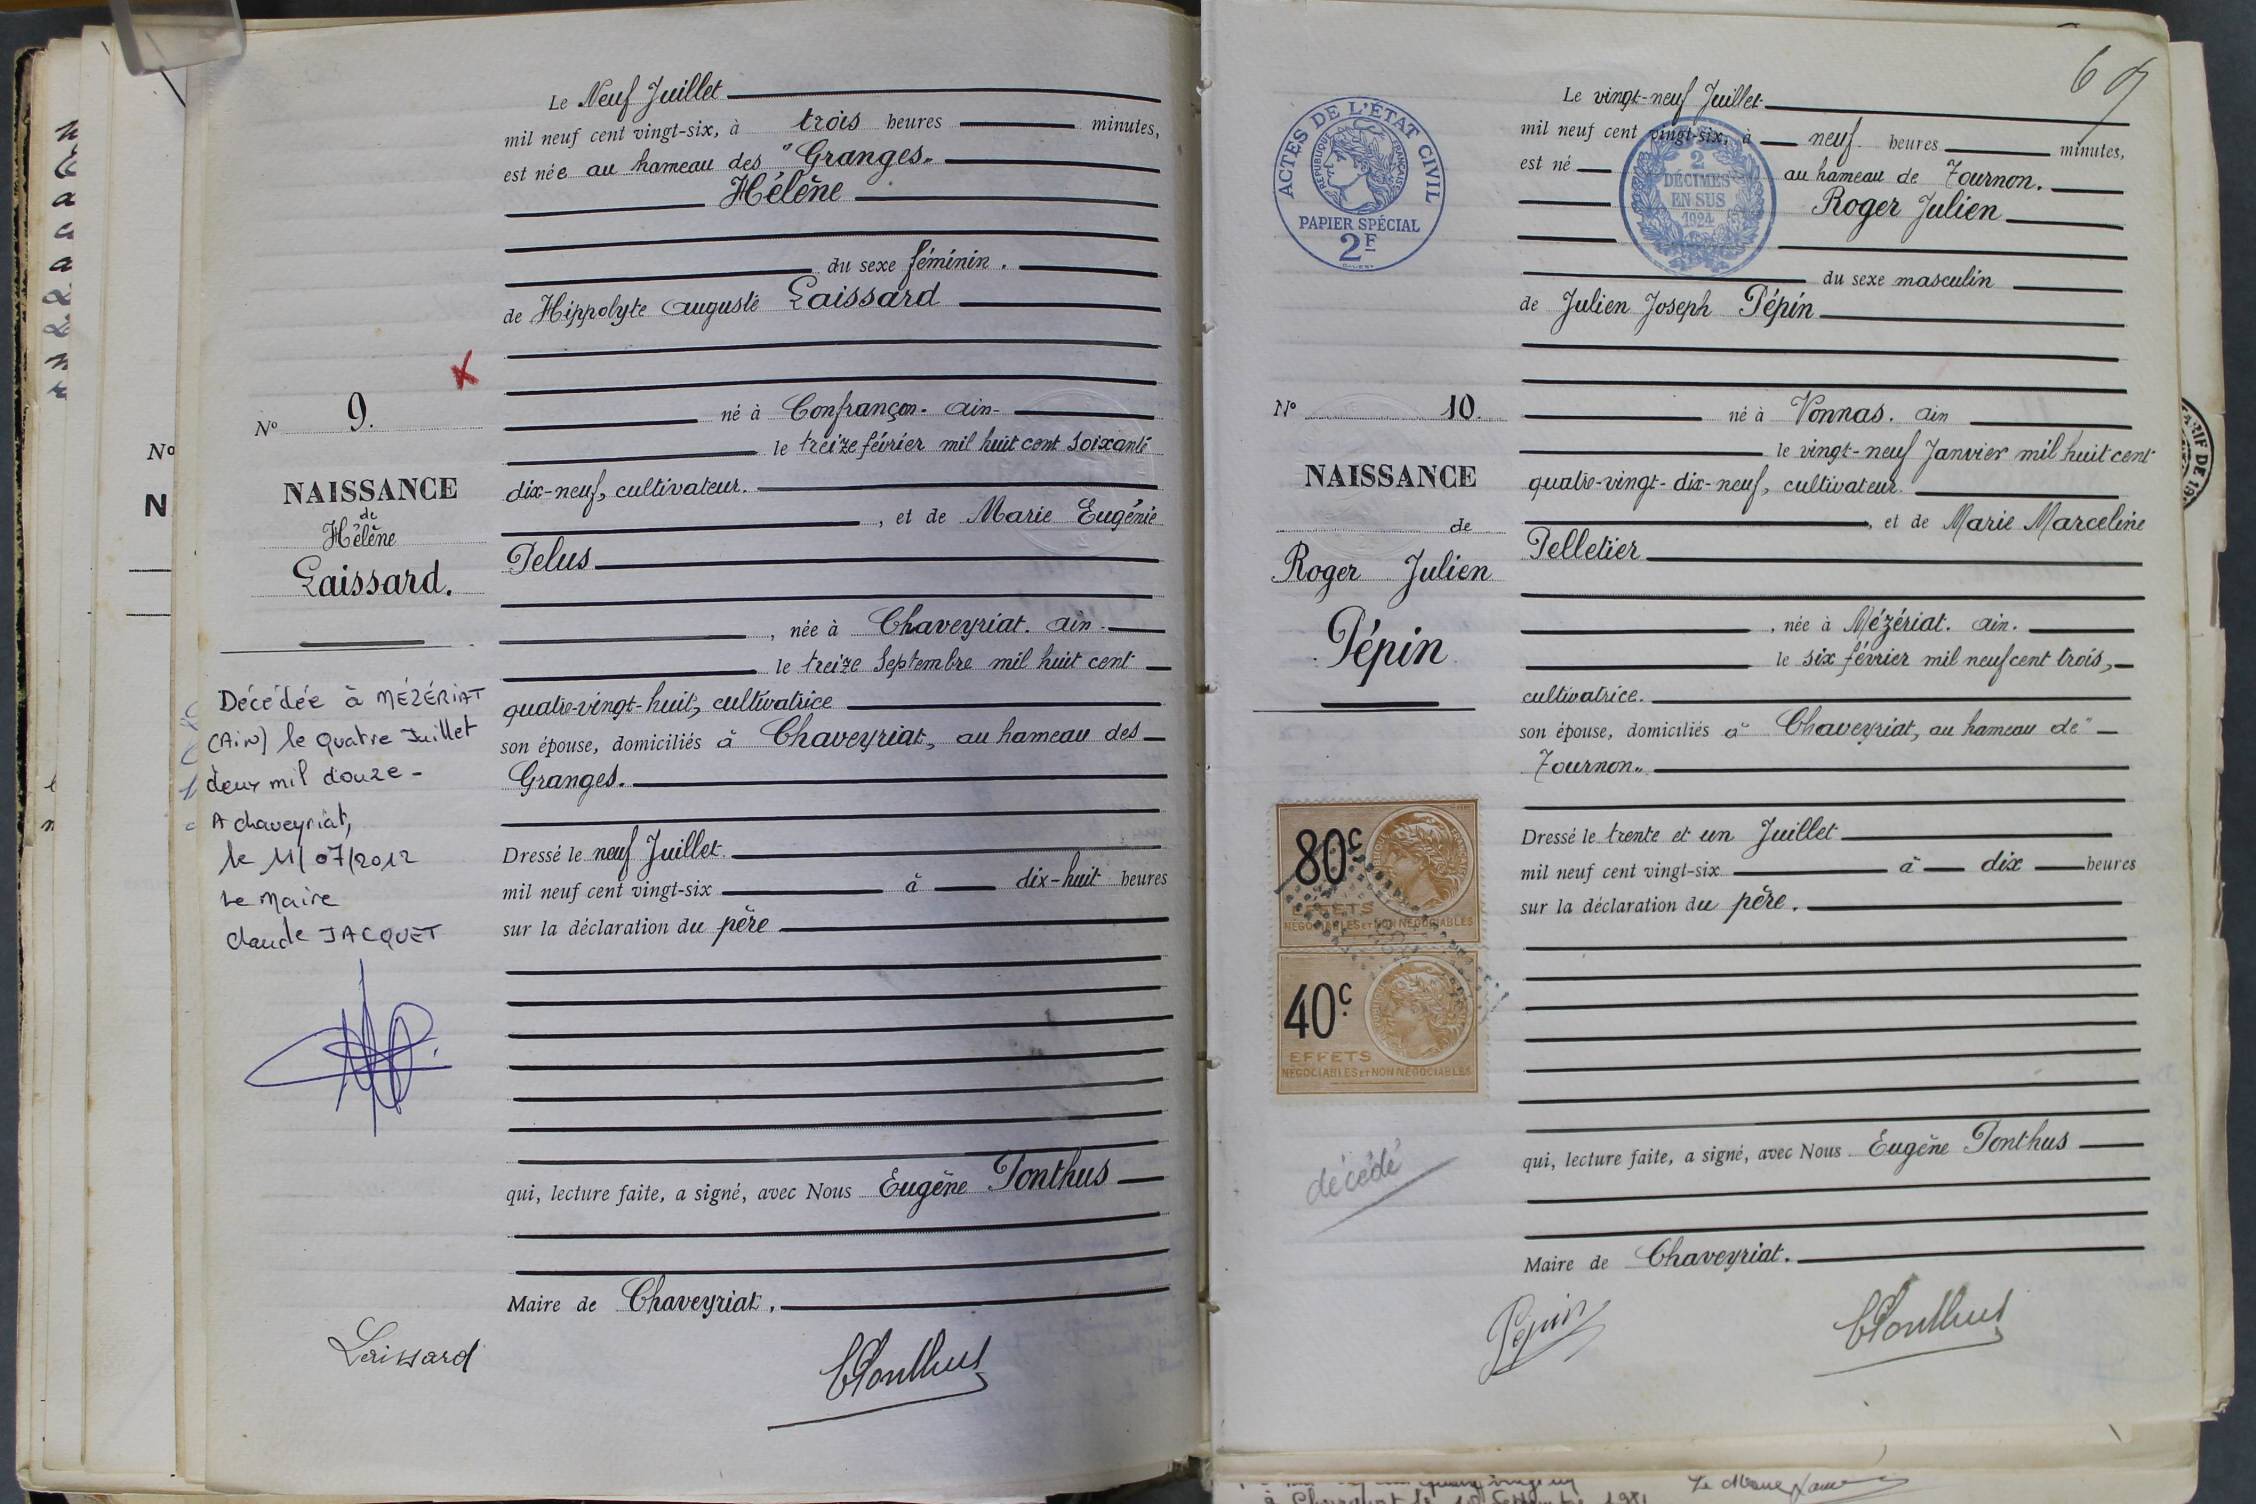 Le Neuf Juillet
mil neuf cent vingt-six, à trois heures minutes,
est née au hameau des "Granges"
Hélène
du sexe féminin.
de Hippolyte Auguste Laissard
né à Confrançon. Ain
le treize février mil huit cent soixante
dix-neuf, cultivateur.
, et de Marie Eugénie
Pelus
, née à Chaveyriat. Ain.
le treize Septembre mil huit cent
quatre-vingt-huit, cultivatrice
son épouse, domiciliés à Chaveyriat, au hameau des
Granges.
Dressé le neuf Juillet.
mil neuf cent vingt-six à dix-huit heures
sur la déclaration du père
qui, lecture faite, a signé, avec Nous Eugène Ponthus
Maire de Chaveyriat.
Laissard
EPonthus
Nº 9.
NAISSANCE
de
Hélène
Laissard.
Décédée à MÉZÉRIAT
(Ain) le quatre Juillet
deux mil douze -
A chaveyriat,
le 11/07/2012
Le Maire
Claude JACQUET
Nº
N
Le vingt-neuf Juillet
mil neuf cent vingt-six, à neuf heures minutes,
est né au hameau de Tournon.
Roger Julien
du sexe masculin
de Julien Joseph Pépin
né à Vonnas. Ain
le vingt-neuf Janvier mil huit cent
quatre-vingt-dix-neuf, cultivateur.
, et de Marie Marceline
Pelletier
, née à Mézériat. Ain.
le six février mil neuf cent trois,
cultivatrice.
son épouse, domiciliés à Chaveyriat, au hameau de "
Tournon"
Dressé le trente et un Juillet
mil neuf cent vingt-six à dix heures
sur la déclaration du père.
qui, lecture faite, a signé, avec Nous Eugène Ponthus
Maire de Chaveyriat.
Pépin
EPonthus
ACTES DE L'ÉTAT CIVIL
RÉPUBLIQUE FRANÇAISE
PAPIER SPÉCIAL
2F
2
DÉCIMES
EN SUS
1924
Nº 10.
NAISSANCE
de
Roger Julien
Pépin
80c
EFFETS
NÉGOCIABLES ET NON NÉGOCIABLES
40c
EFFETS
NÉGOCIABLES ET NON NÉGOCIABLES
décédé